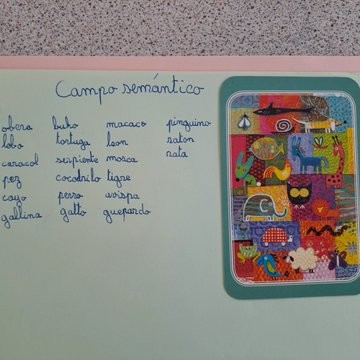 Campo semántico
lobo
caracol
pez
gallina
buho
tortuga
serpiente
cocodrilo
perro
gatto
macaco
leon
mosca
tigre
avispa
guepardo
pinguino
raton
rata